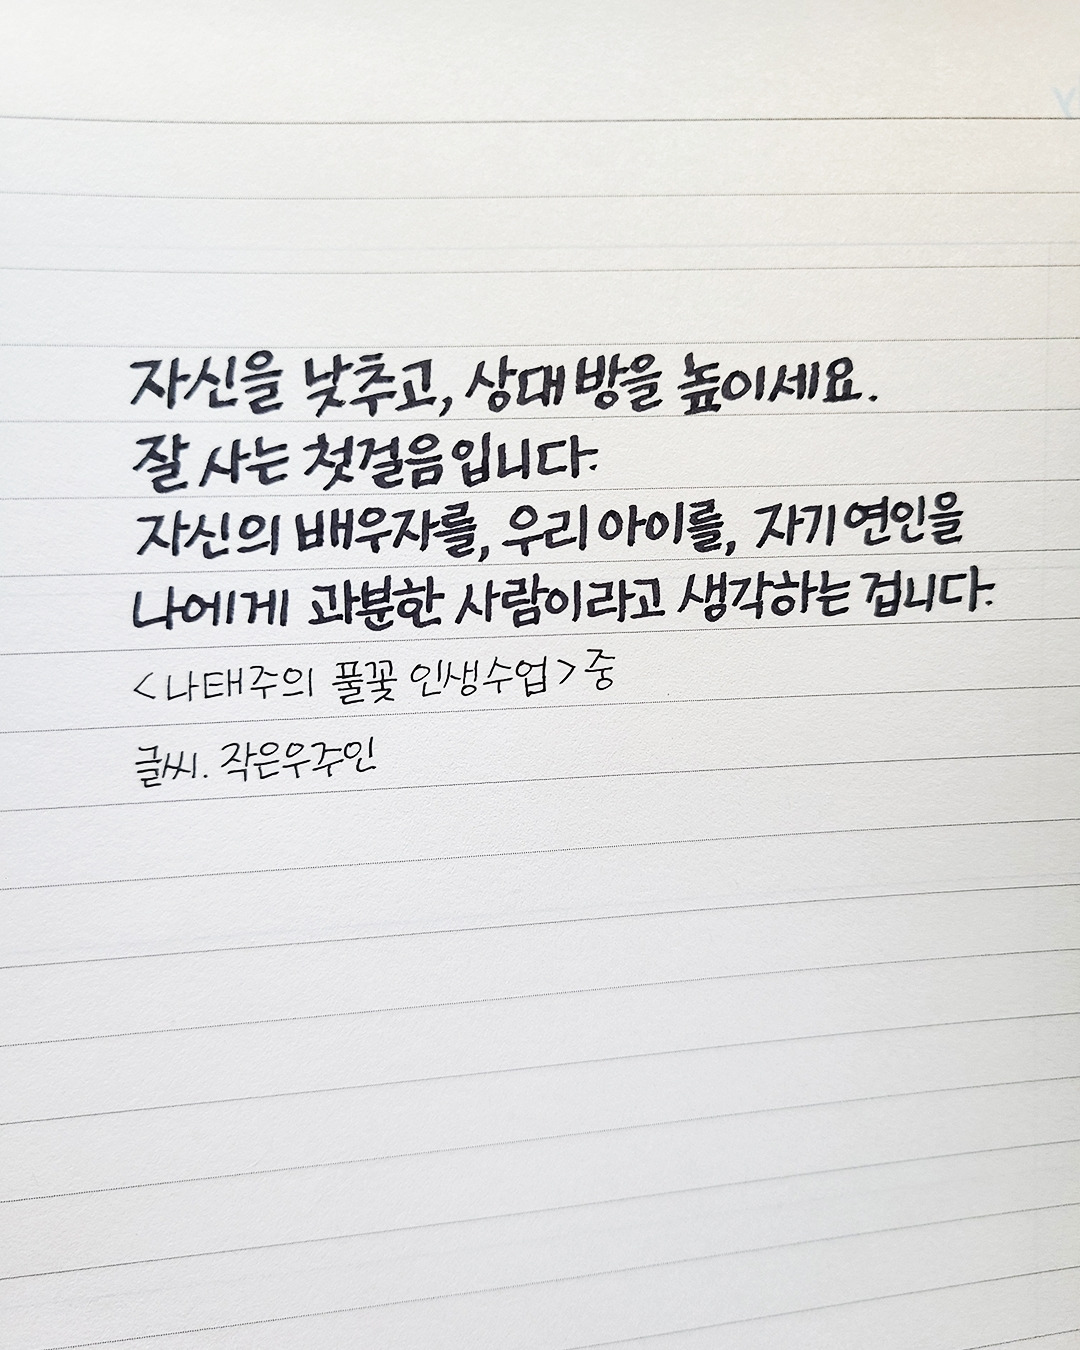 자신을 낮추고, 상대방을 높이세요.
잘 사는 첫걸음입니다.
자신의 배우자를, 우리 아이를, 자기 연인을
나에게 과분한 사람이라고 생각하는 겁니다.
<나태주의 풀꽃 인생수업> 중
글씨. 작은우주인